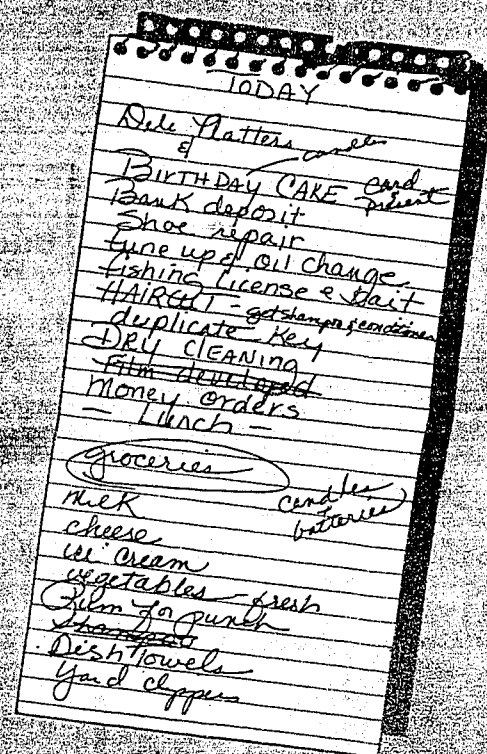 TODAY
Deli Platters
& candles
BIRTHDAY CAKE card
present
Bank deposit
Shoe repair
tune up & oil change
fishing license & bait
HAIRCUT - get shampoo & conditioner
duplicate key
DRY CLEANING
Film developed
Money orders
- Lunch -
groceries
milk
candles
batteries
cheese
ice cream
vegetables - fresh
Rum for punch
Shampoo
Dish Towels
Yard clippers